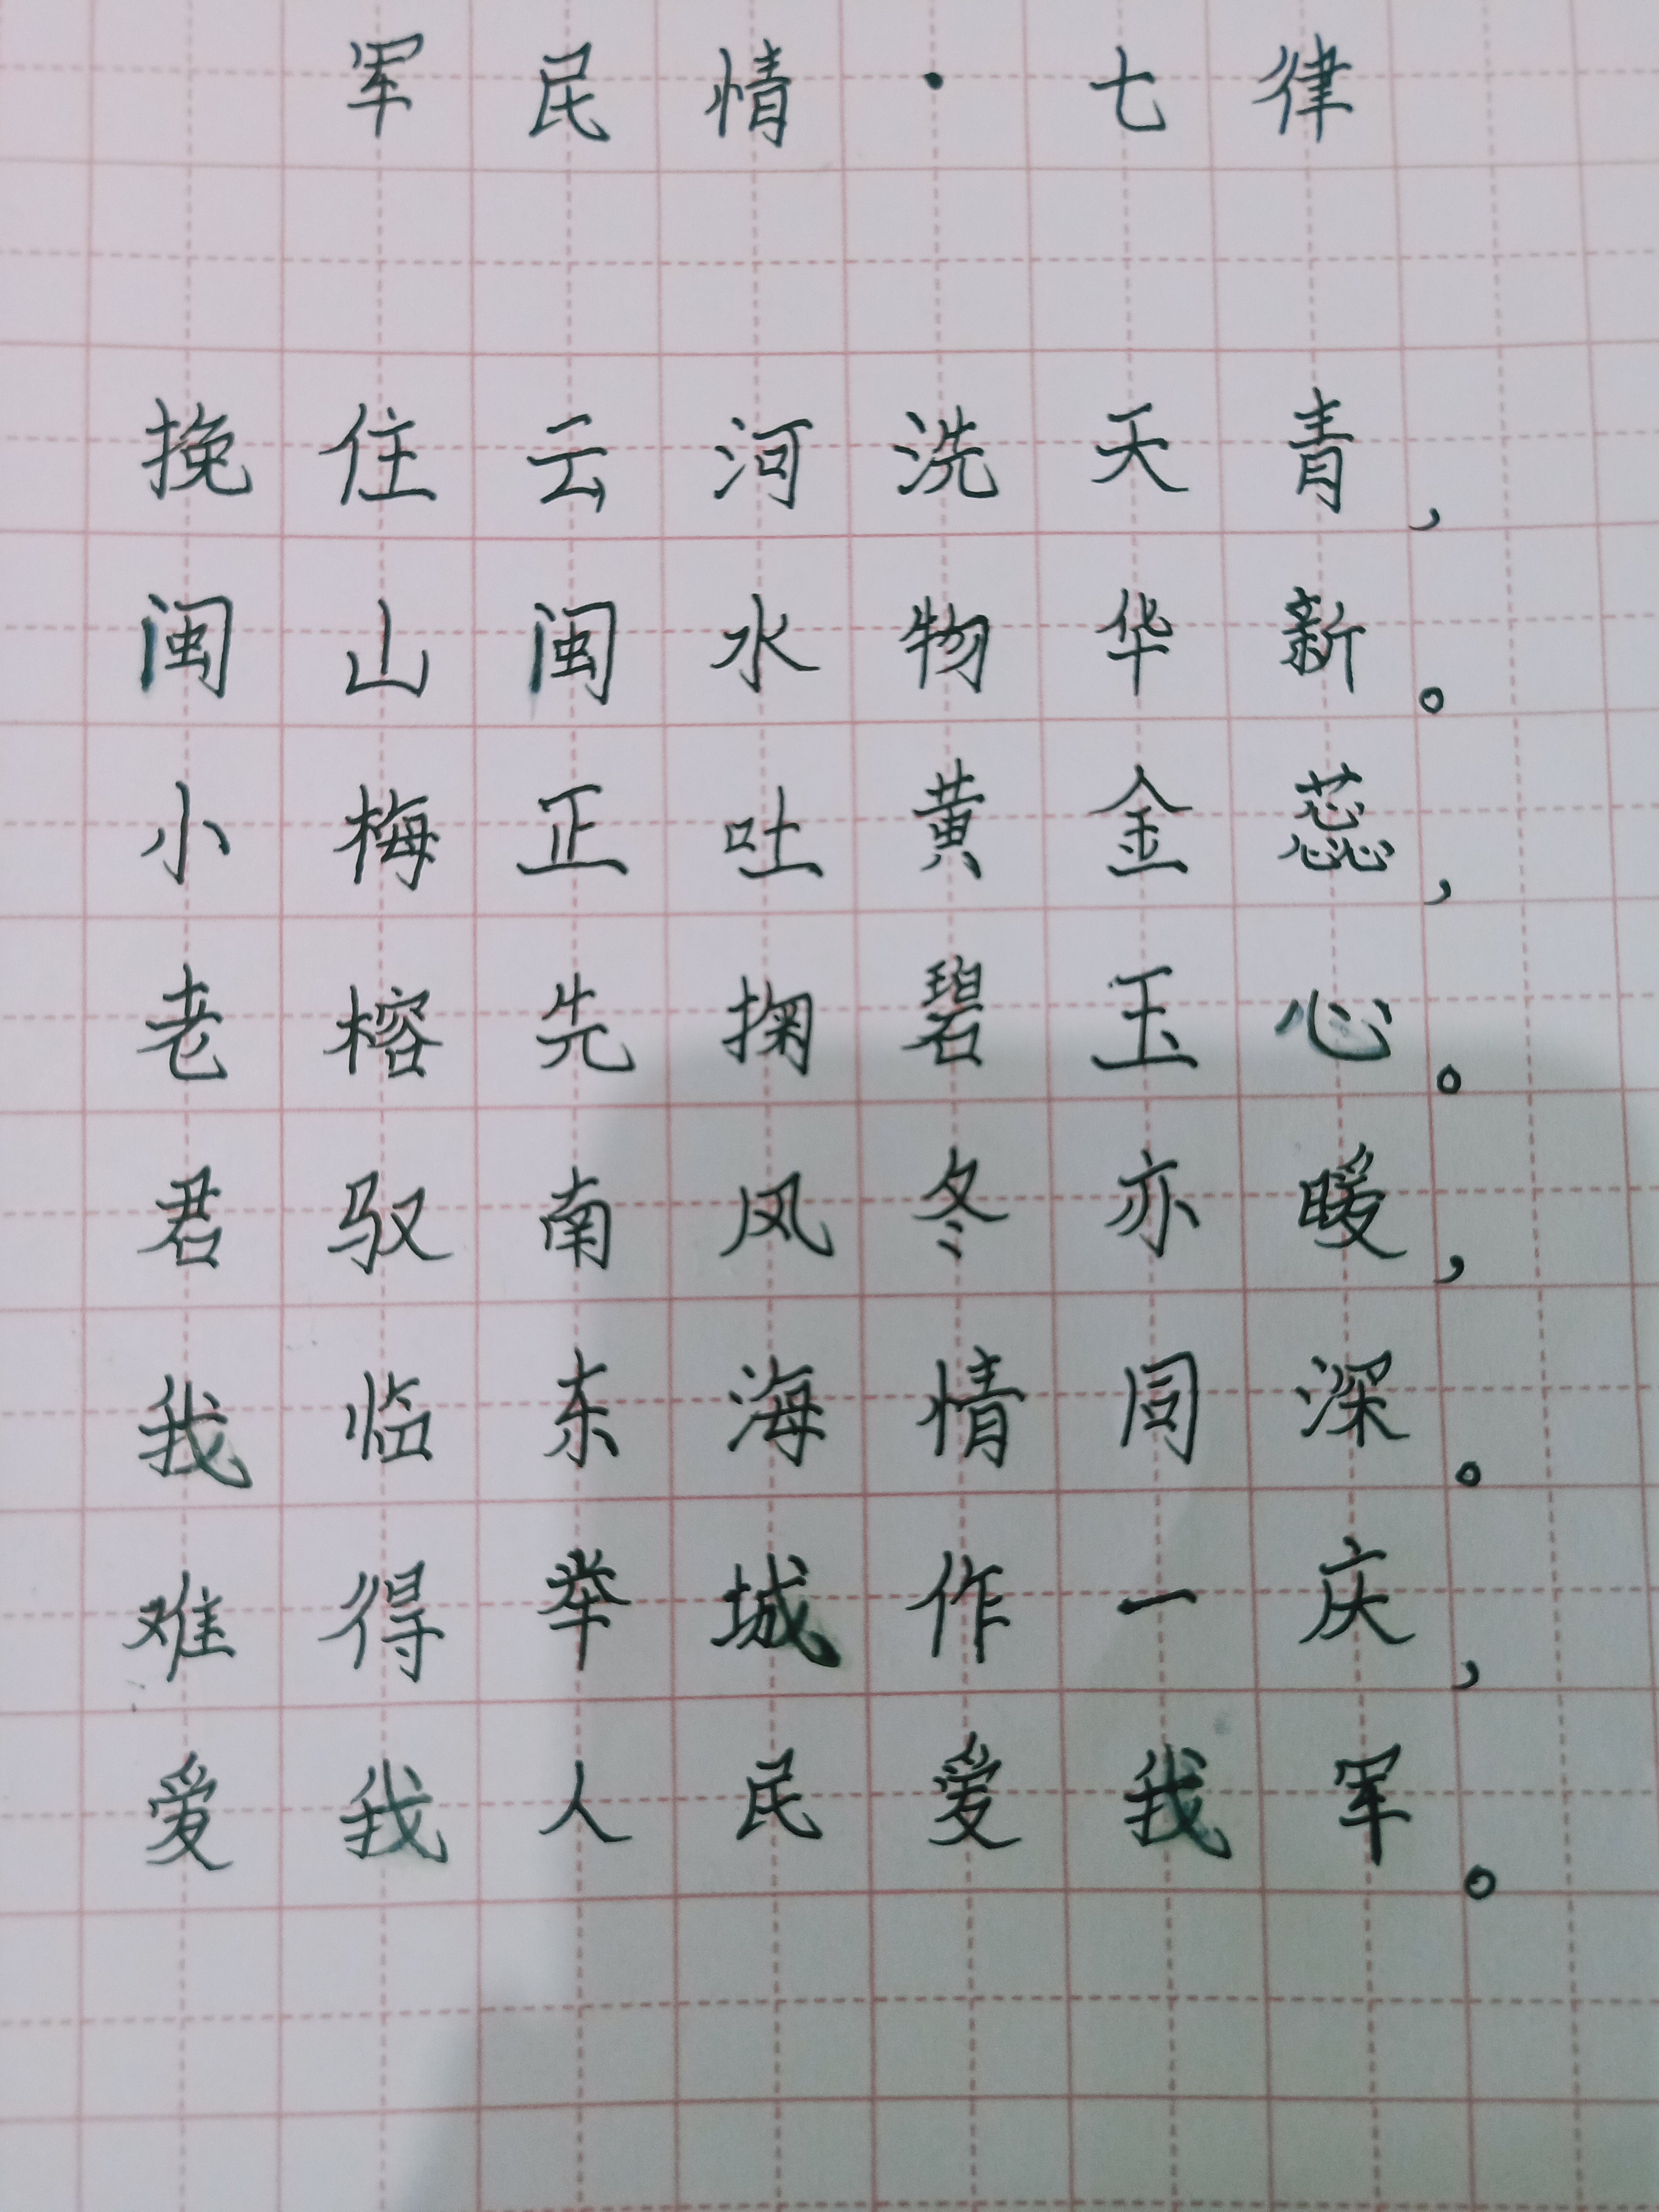 军民情·七律
挽住云河洗天青，
闽山闽水物华新。
小梅正吐黄金蕊，
老榕先掬碧玉心。
君驭南风冬亦暖，
我临东海情同深。
难得举城作一庆，
爱我人民爱我军。